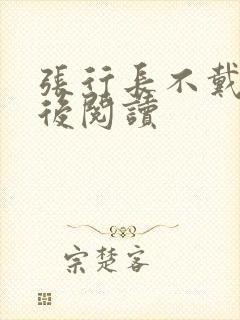 張行長不戴
後閱讀
宗楚客